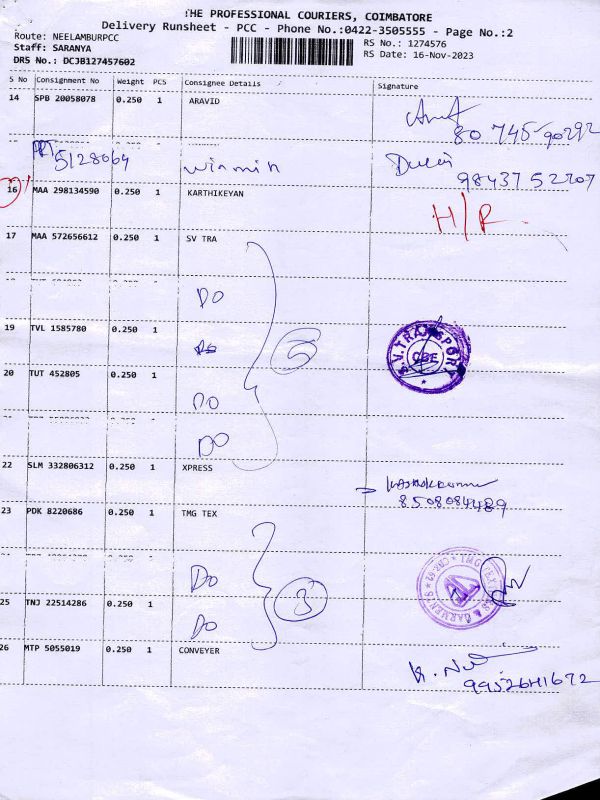 THE PROFESSIONAL COURIERS, COIMBATORE
Delivery Runsheet - PCC - Phone No.:0422-3505555 - Page No.:2
Route: NEELAMBURPCC
Staff: SARANYA
DRS No.: DCJB127457602
RS No.: 1274576
RS Date: 16-Nov-2023
S No Consignment No Weight PCS Consignee Details Signature
14 SPB 20058078 0.250 1 ARAVID
80 745-90292
5128064 Winmin
98437 52207
16 MAA 298134590 0.250 1 KARTHIKEYAN
H/R
17 MAA 572656612 0.250 1 SV TRA
DO
19 TVL 1585780 0.250 1
Do
5
S.V. TRANSPORT
CBE
20 TUT 452805 0.250 1
DO
DO
22 SLM 332806312 0.250 1 XPRESS
8508084489
23 PDK 8220686 0.250 1 TMG TEX
DO
3
25 TNJ 22514286 0.250 1
DO
26 MTP 5055019 0.250 1 CONVEYER